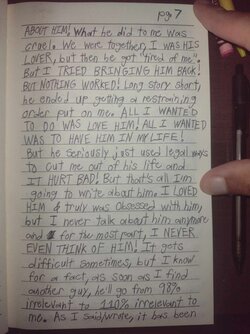 pg 7
ABOUT HIM! What he did to me was
cruel. We were together, I WAS HIS
LOVER, but then he got "tired of me".
But I TRIED BRINGING HIM BACK!
BUT NOTHING WORKED! Long story short,
he ended up getting a restraining
order put on me. ALL I WANTED
TO DO WAS LOVE HIM! ALL I WANTED
WAS TO HAVE HIM IN MY LIFE!
But he seriously just used legal ways
to cut me out of his life and
IT HURT BAD! But that's all I'm
going to write about him. I LOVED
HIM & truly was Obsessed with him,
but I never talk about him anymore
and for the most part, I NEVER
EVEN THINK OF HIM! It gets
difficult sometimes, but I know
for a fact, as soon as I find
another guy, he'll go from 98%
irrelevant to 110% irrelevant to
me. As I said/wrote, it has been